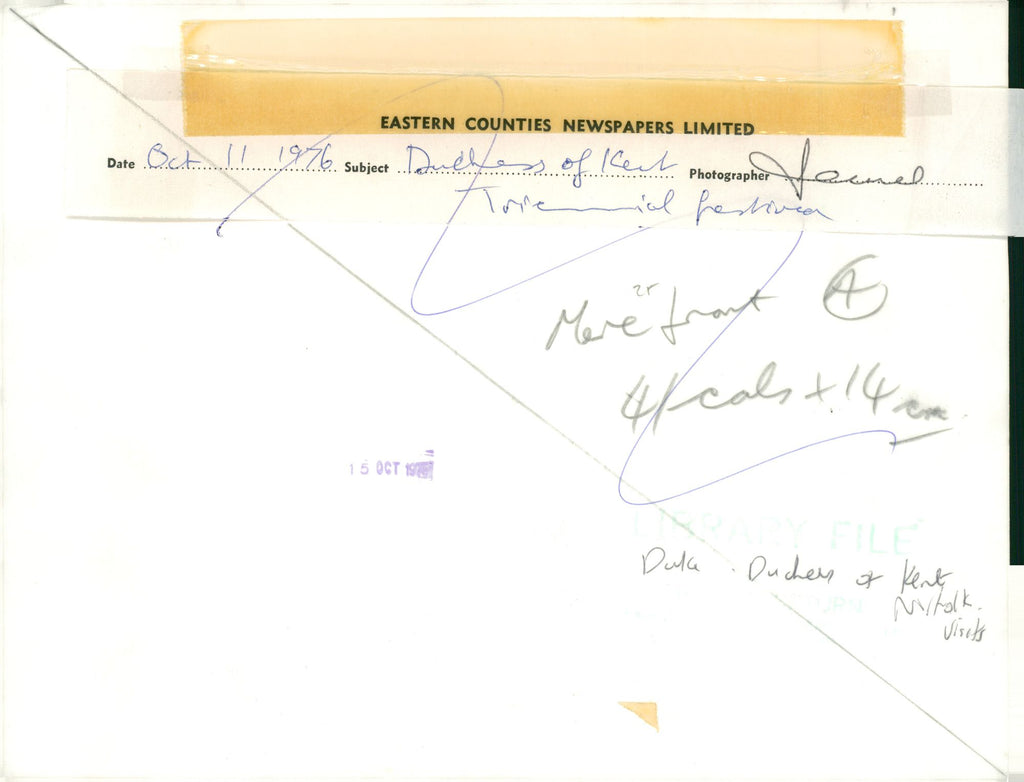 EASTERN COUNTIES NEWSPAPERS LIMITED
Date Oct 11 1976 Subject Duchess of Kent Photographer
Triennial festival
Merc front A
4/ cols x 14 cm
15 OCT 1976
LIBRARY FILE
Duke Duchess of Kent
Norfolk.
Visits